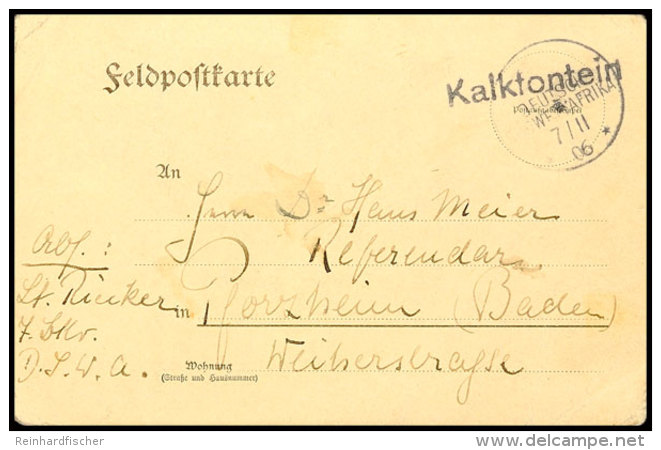 Feldpostkarte
Kalkfontein
DEUTSCH
WESTAFRIKA
7/11
06
An
Herrn Dr Hans Meier
Referendar
Abs.:
Lt. Rieker
in Pforzheim (Baden)
7. Bttr.
D.S.W.A.
Weiherstrasse
Wohnung
(Straße und Hausnummer)
Reinhardfischer
delcampe.net